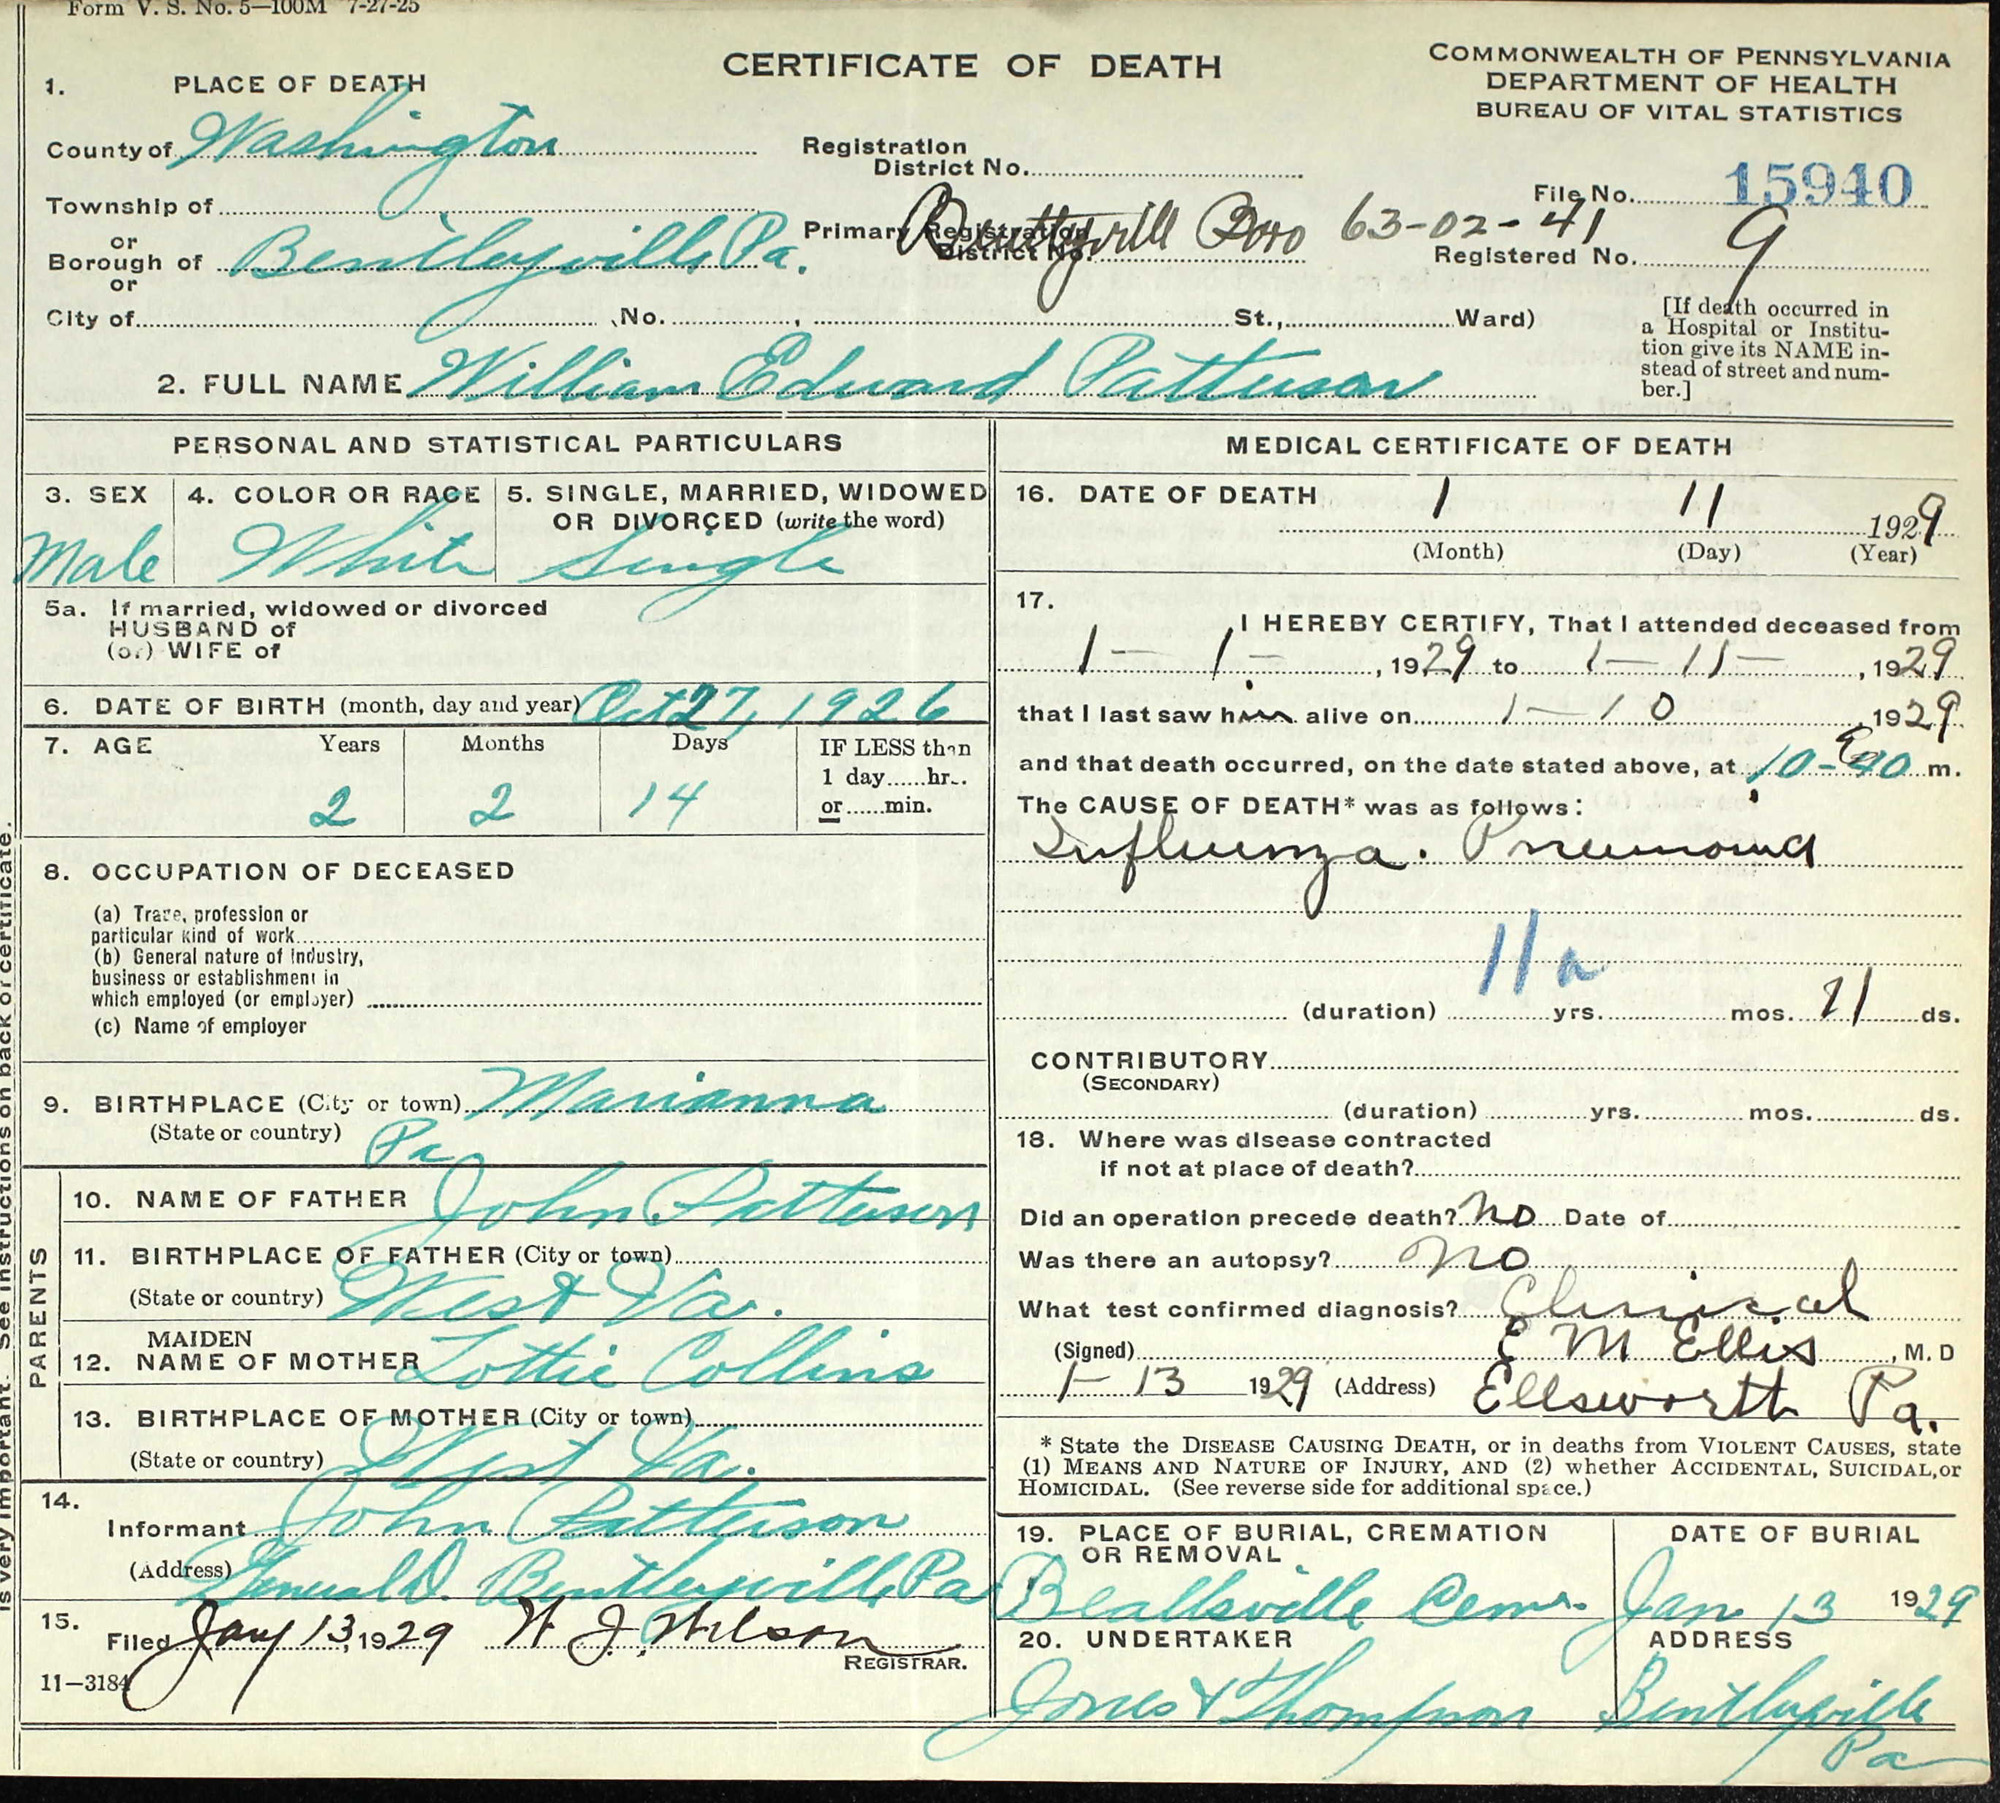 Form V. S. No. 5—100M 7-27-25
CERTIFICATE OF DEATH
COMMONWEALTH OF PENNSYLVANIA
DEPARTMENT OF HEALTH
BUREAU OF VITAL STATISTICS
1. PLACE OF DEATH
County of Washington
Registration District No.
File No. 15940
Township of
or
Borough of Bentleyville Pa.
Primary Registration District No. Bentleyville Boro 63-02-41
Registered No. 9
or
City of No. St., Ward)
[If death occurred in
a Hospital or Institu-
tion give its NAME in-
stead of street and num-
ber.]
2. FULL NAME William Edward Patterson
PERSONAL AND STATISTICAL PARTICULARS
3. SEX
Male
4. COLOR OR RACE
White
5. SINGLE, MARRIED, WIDOWED
OR DIVORCED (write the word)
Single
5a. If married, widowed or divorced
HUSBAND of
(or) WIFE of
6. DATE OF BIRTH (month, day and year) Oct 27, 1926
7. AGE Years Months Days
2 2 14
IF LESS than
1 day......hr..
or......min.
8. OCCUPATION OF DECEASED
(a) Trade, profession or
particular kind of work
(b) General nature of industry,
business or establishment in
which employed (or employer)
(c) Name of employer
9. BIRTHPLACE (City or town) Marianna
(State or country) Pa
PARENTS
10. NAME OF FATHER John Patterson
11. BIRTHPLACE OF FATHER (City or town)
(State or country) West Va.
12. MAIDEN NAME OF MOTHER Lottie Collins
13. BIRTHPLACE OF MOTHER (City or town)
(State or country) West Va.
14.
Informant John Patterson
(Address) Bentleyville Pa
15.
Filed Jany 13, 1929 W J. Wilson
REGISTRAR.
11—3184
is very important. See instructions on back of certificate.
MEDICAL CERTIFICATE OF DEATH
16. DATE OF DEATH 1 11 1929
(Month) (Day) (Year)
17.
I HEREBY CERTIFY, That I attended deceased from
1—1—, 1929 to 1—11—, 1929
that I last saw him alive on 1—10, 1929
and that death occurred, on the date stated above, at 10-40 m.
The CAUSE OF DEATH* was as follows:
Influenza. Pneumonia
11a
(duration) yrs. mos. 11 ds.
CONTRIBUTORY
(SECONDARY)
(duration) yrs. mos. ds.
18. Where was disease contracted
if not at place of death?
Did an operation precede death? No Date of
Was there an autopsy? No
What test confirmed diagnosis? Clinical
(Signed) E M Ellis, M. D
1—13 1929 (Address) Ellsworth Pa.
* State the DISEASE CAUSING DEATH, or in deaths from VIOLENT CAUSES, state
(1) MEANS AND NATURE OF INJURY, AND (2) whether ACCIDENTAL, SUICIDAL, or
HOMICIDAL. (See reverse side for additional space.)
19. PLACE OF BURIAL, CREMATION
OR REMOVAL
Beallsville Cem.
DATE OF BURIAL
Jan 13 1929
20. UNDERTAKER
Jones & Thompson
ADDRESS
Bentleyville
Pa